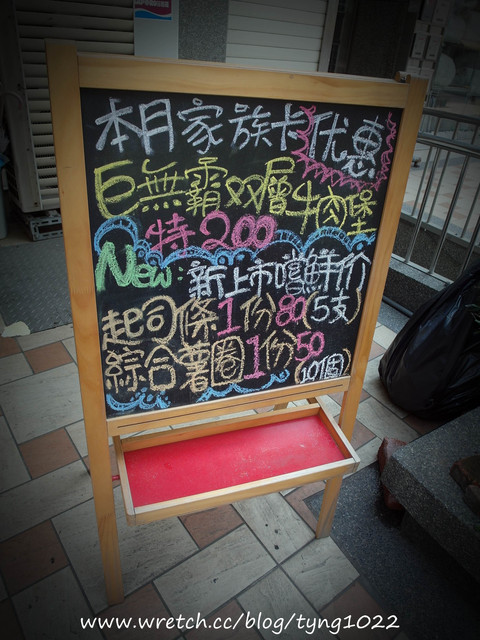 本月家族卡优惠
巨無霸双層牛肉堡
特200
New:新上市嚐鮮价
起司條1份80(5支)
綜合薯圈1份50(10個)
www.wretch.cc/blog/tyng1022